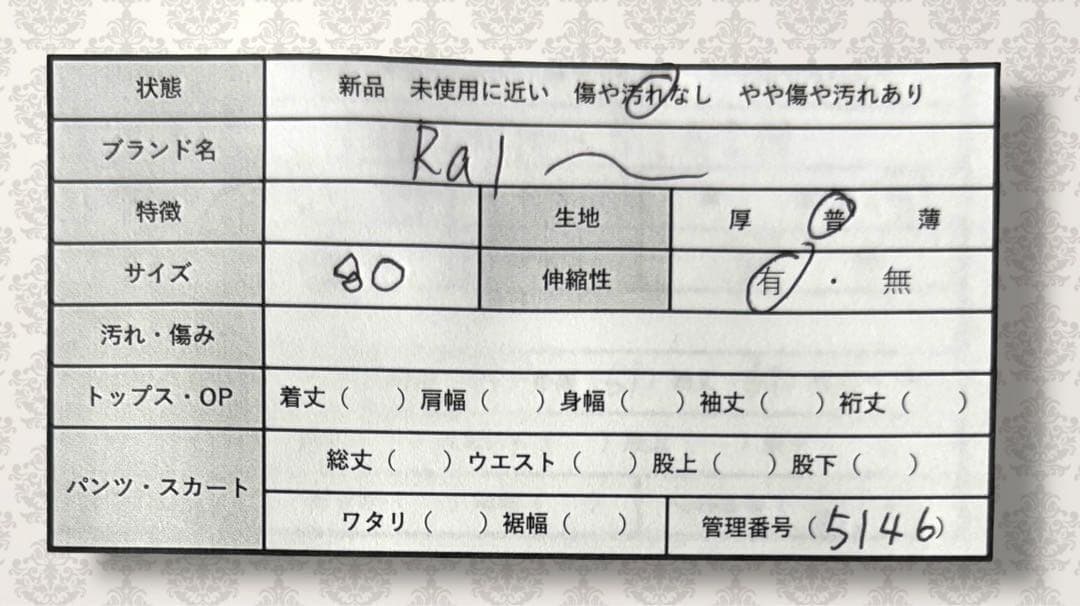 状態 新品 未使用に近い 傷や汚れなし やや傷や汚れあり
ブランド名 Ral
特徴 生地 厚 普 薄
サイズ 80 伸縮性 有・無
汚れ・傷み
トップス・OP 着丈（ ）肩幅（ ）身幅（ ）袖丈（ ）裄丈（ ）
パンツ・スカート 総丈（ ）ウエスト（ ）股上（ ）股下（ ）
ワタリ（ ）裾幅（ ） 管理番号（5146）